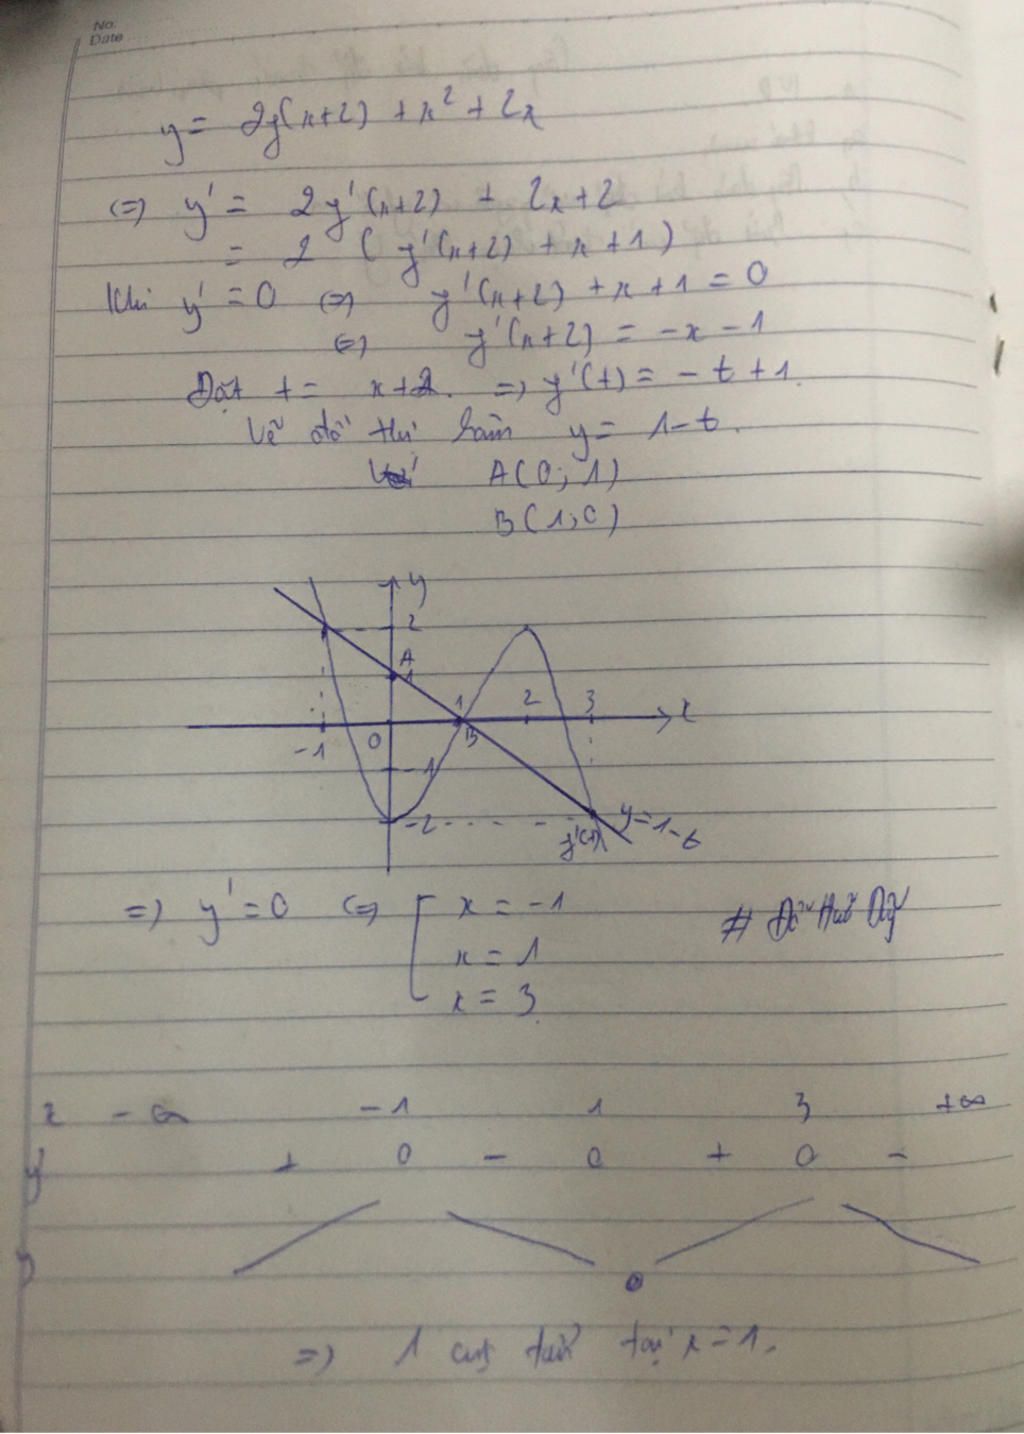 No.
Date
y = 2g(x+2) + x² + 2x
⇔ y' = 2y'(x+2) + 2x+2
= 2 ( y'(x+2) + x + 1 )
Khi y' = 0 ⇔ y'(x+2) + x + 1 = 0
⇔ y'(x+2) = -x - 1
Đặt t = x+2. ⇒ y'(t) = -t + 1.
Vẽ đồ thị hàm y = 1-t.
A(0; 1)
B(1; 0)
y
2
A
1
1 2 3 t
-1 0 B
-1
-2
y'(t) y=1-t
⇒ y' = 0 ⇔ [ x = -1
x = 1
x = 3
# Đỗ Huê Dỹ
x -∞ -1 1 3 +∞
y' + 0 - 0 + 0 -
y
⇒ 1 cực tiểu tại x = 1.